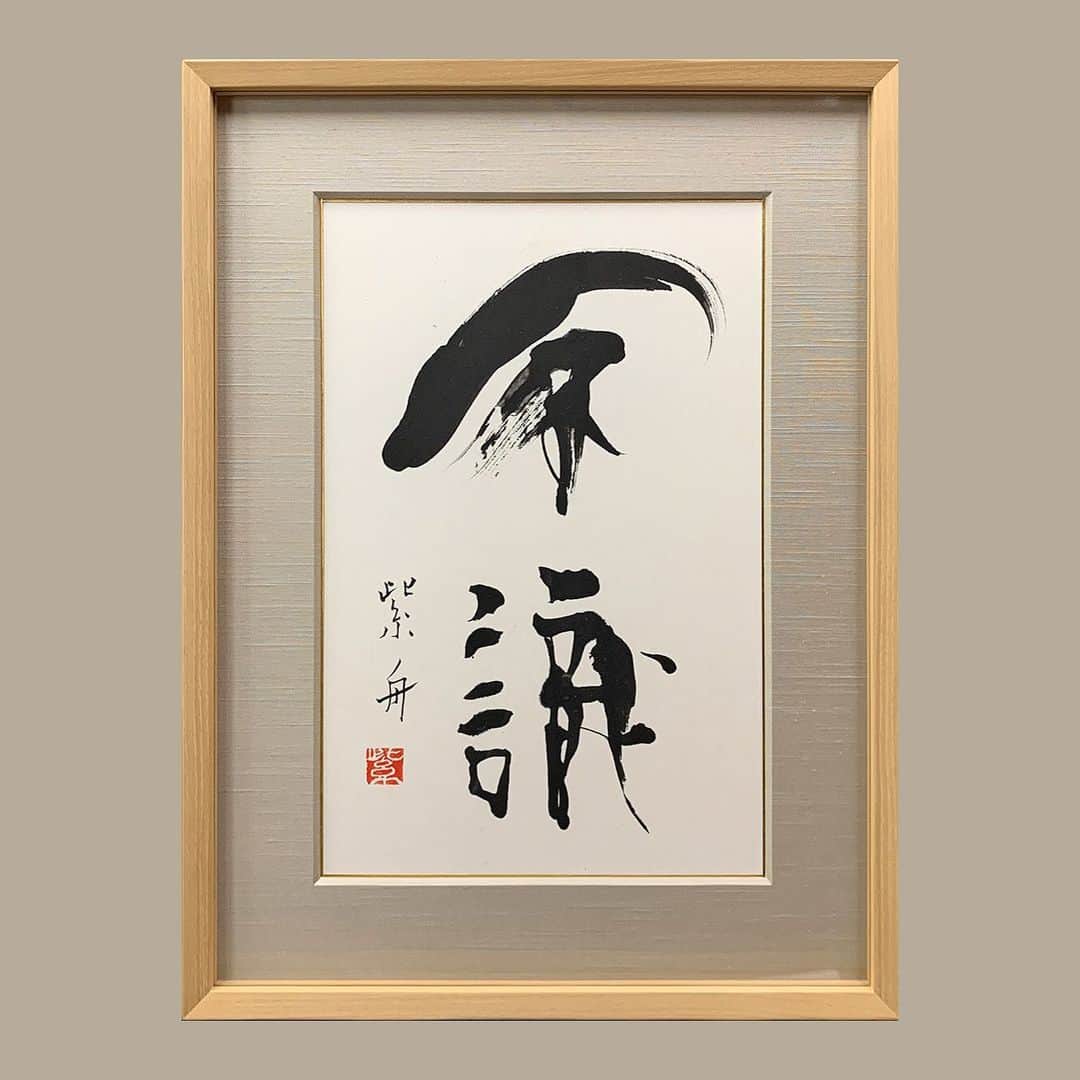 不識
紫舟
紫